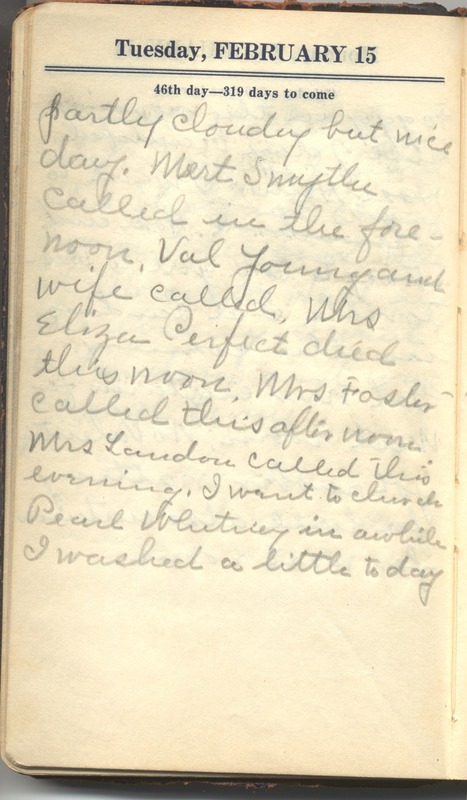 Tuesday, FEBRUARY 15
46th day—319 days to come
partly cloudy but nice
day. Mert Smythe
called in the fore-
noon. Val Young and
wife called. Mrs
Eliza Perfect died
this noon. Mrs Foster
called this after noon.
Mrs Landon called this
evening. I went to church
Pearl Whitney in awhile
I washed a little today